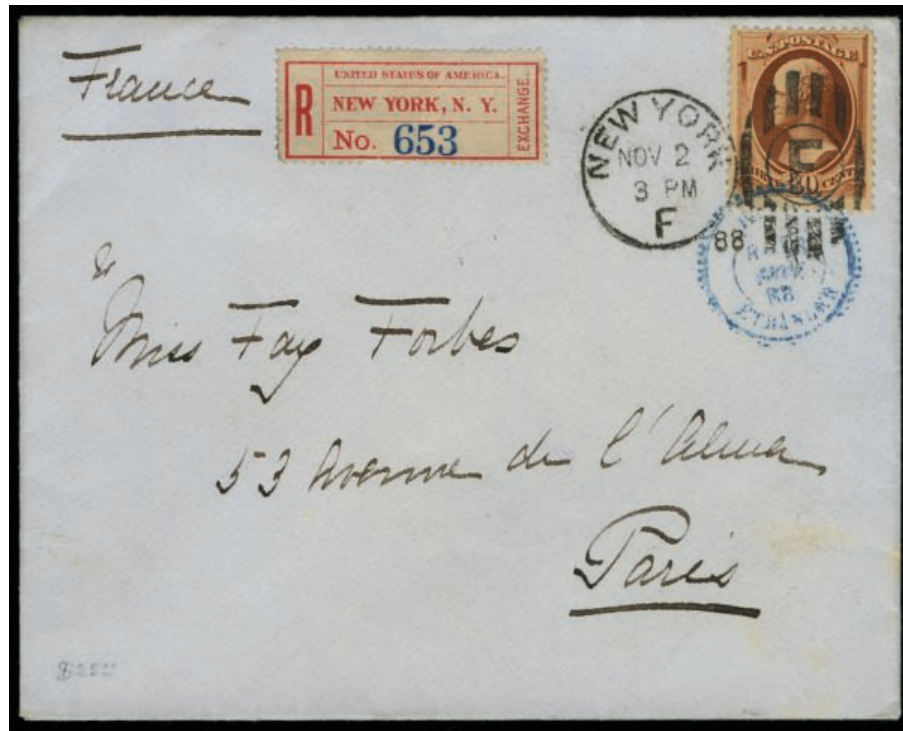 France
UNITED STATES OF AMERICA.
R
NEW YORK, N. Y.
No. 653
EXCHANGE.
NEW YORK
NOV 2
3 PM
F
88
U.S. POSTAGE
30 CENTS
88
ETRANGER
Miss Fay Forbes
53 Avenue de l'Alma
Paris